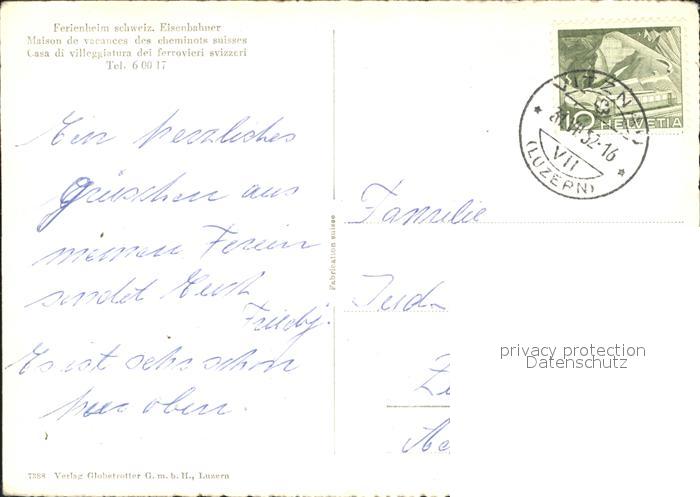 Ferienheim schweiz. Eisenbahner
Maison de vacances des cheminots suisses
Casa di villeggiatura dei ferrovieri svizzeri
Tel. 6 00 17
Ein herzliches
grüsschen aus
meinen Ferien
sendet Euch
Friedy.
Es ist sehr schön
hier oben.
7388 Verlag Globetrotter G. m. b. H., Luzern
Fabrication suisse
10 HELVETIA
VITZNAU
VII 52-16
VII
(LUZERN)
Familie
privacy protection
Datenschutz